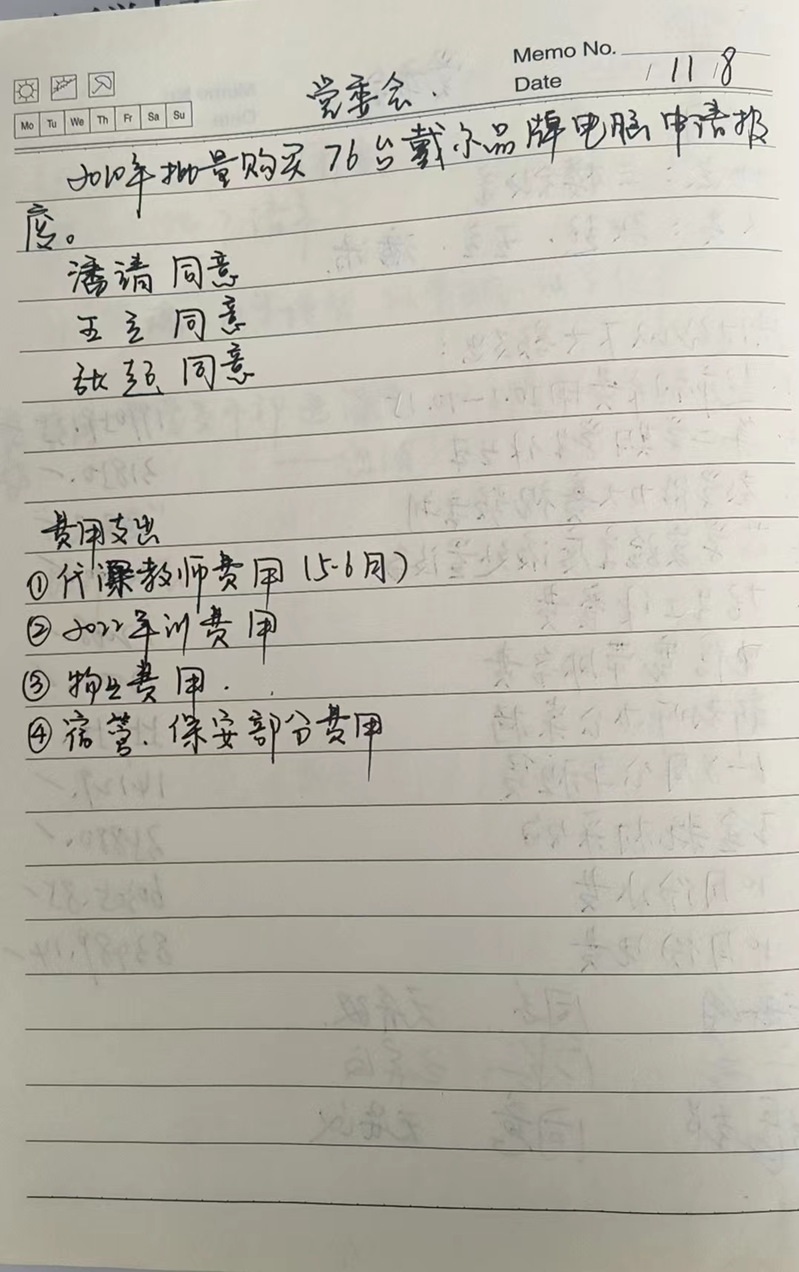 Memo No.
Date / 11 / 8
Mo Tu We Th Fr Sa Su
党委会.
2010年批量购买76台戴尔品牌电脑申请报
废。
潘请 同意
王立 同意
张超 同意
费用支出
①代课教师费用(5-6月)
②2022年训费用
③物业费用.
④宿营、保安部分费用